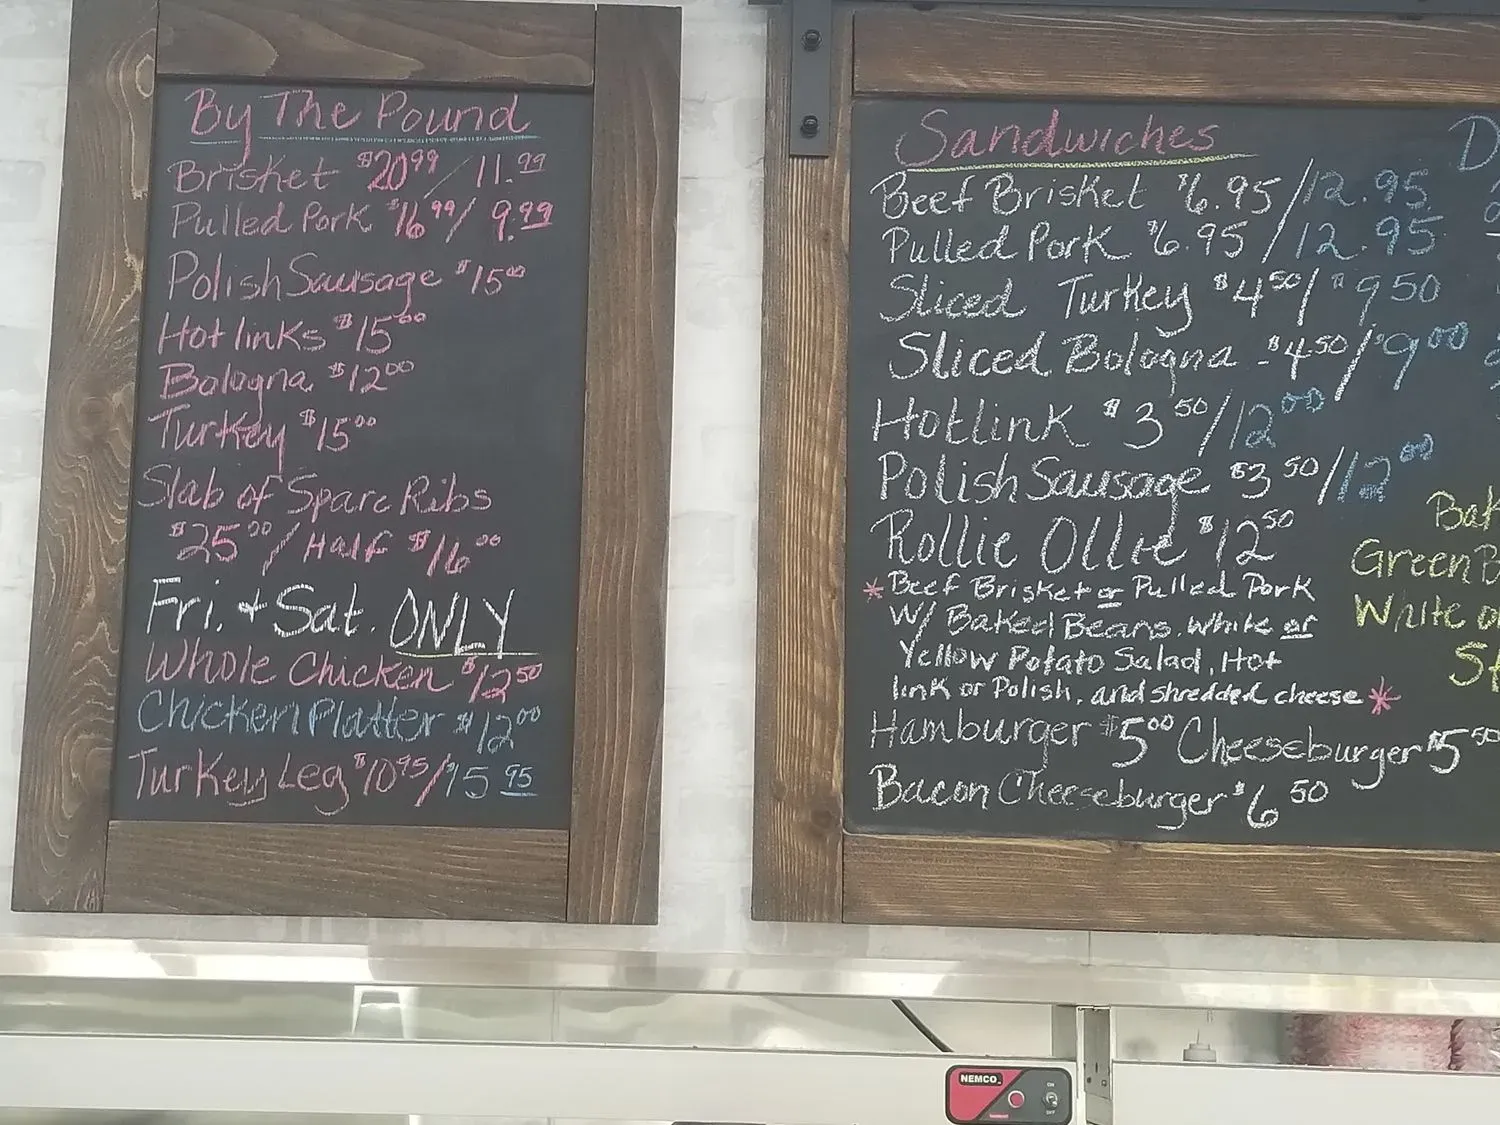 By The Pound
Brisket $20.99 / 11.99
Pulled Pork $16.99 / 9.99
Polish Sausage $15.00
Hot links $15.00
Bologna $12.00
Turkey $15.00
Slab of Spare Ribs
$25.00 / Half $16.00
Fri. + Sat. ONLY
Whole Chicken $12.50
Chicken Platter $12.00
Turkey Leg $10.95/$15.95
Sandwiches
Beef Brisket $6.95/12.95
Pulled Pork $6.95/12.95
Sliced Turkey $4.50/$9.50
Sliced Bologna $4.50/$9.00
Hotlink $3.50/12.00
Polish Sausage $3.50/12.00
Rollie Ollie $12.50
*Beef Brisket or Pulled Pork
W/ Baked Beans, White or
Yellow Potato Salad, Hot
link or Polish, and shredded cheese*
Hamburger $5.00 Cheeseburger $5.50
Bacon Cheeseburger $6.50
D
Bak
Green B
White o
NEMCO
ON
OFF